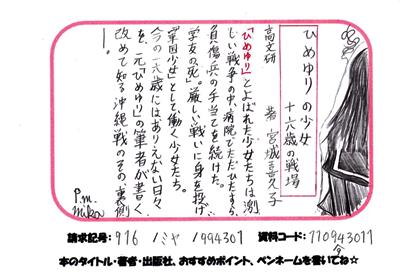 ひめゆりの少女
十六歳の戦場
高文研　著 宮城喜久子
「ひめゆり」とよばれた少女たちは激
しい戦争の中、病院でただひたすら
負傷兵の手当てを続けた。
学友の死、厳しい戦いに身を投げ
「軍国少女」として働く少女たち。
今の十六歳にはありえない日々
を、元「ひめゆり」の筆者が書く。
改めて知る沖縄戦のその裏側
ー。
P.n. mikou
請求記号: 916 /ミヤ /994307 資料コード: 110943077
本のタイトル・著者・出版社、おすすめポイント、ペンネームを書いてね☆